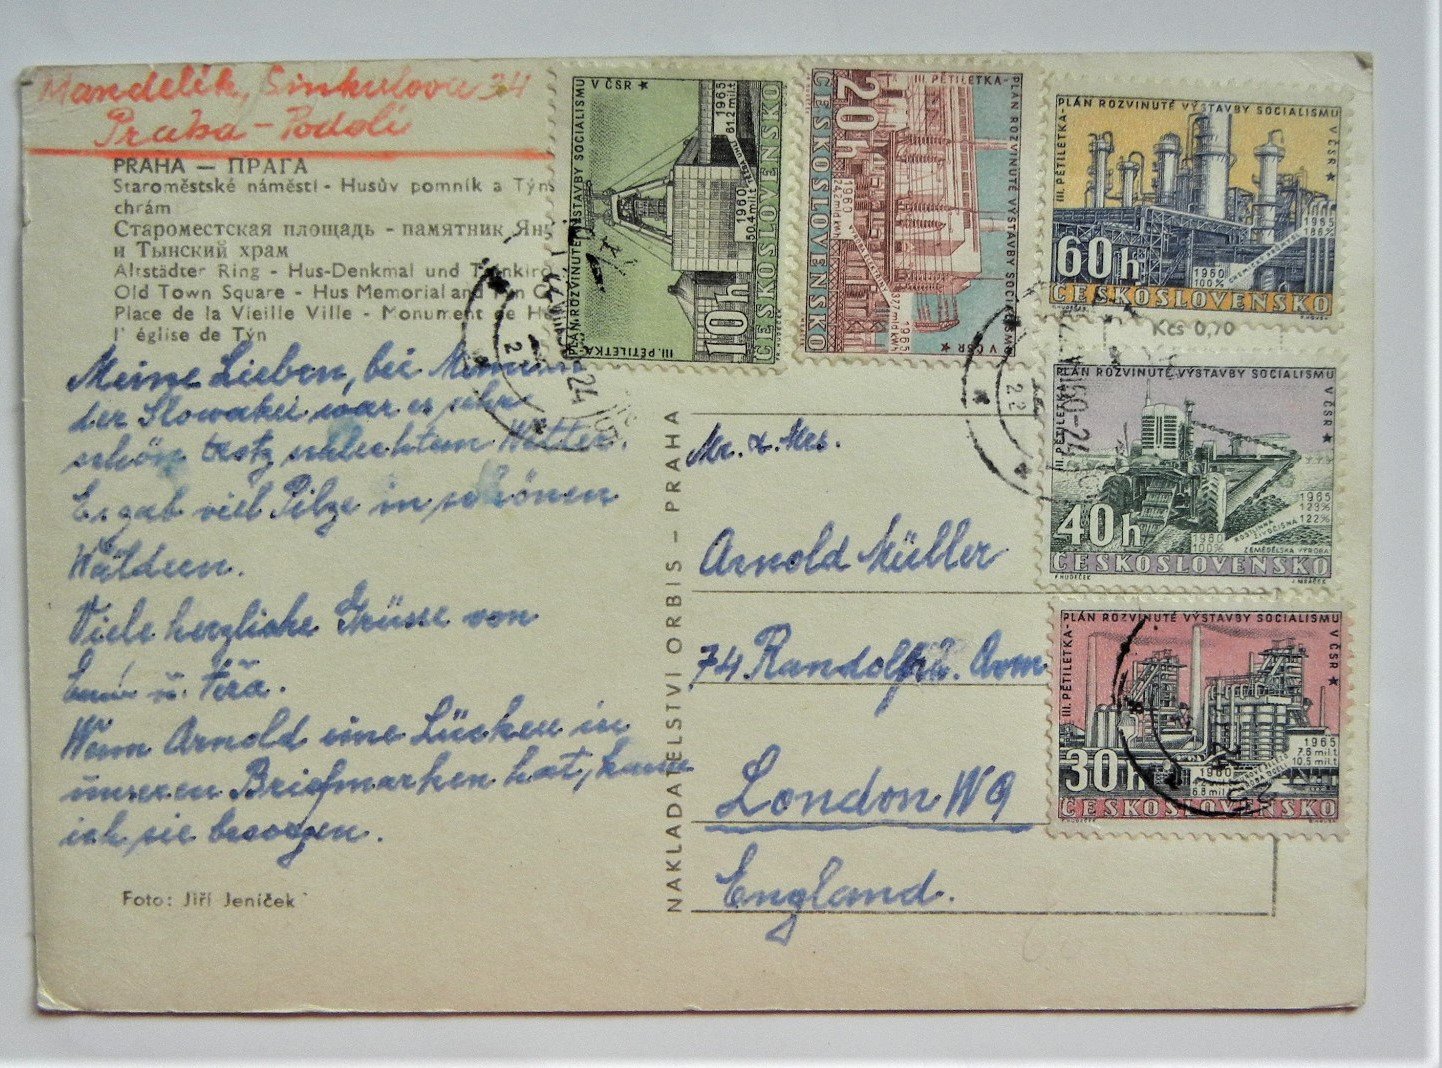 Mandelík, Sinkulova 34
Praha - Podolí
PRAHA — ПРАГА
Staroměstské náměstí - Husův pomník a Týns
chrám
Староместская площадь - памятник Яну
и Тынский храм
Altstädter Ring - Hus-Denkmal und Teinkirc
Old Town Square - Hus Memorial and
Place de la Vieille Ville - Monument de H
l' église de Týn
Meine Lieben, bei
der Slowakei war es sehr
schön trotz schlechtem Wetter.
Es gab viel Pilze in schönen
Wäldern.
Viele herzliche Grüsse von
u. Věra.
Wenn Arnold eine Lücken in
unseren Briefmarken hat, kann
ich sie besorgen.
Foto: Jiří Jeníček
NAKLADATELSTVÍ ORBIS - PRAHA
Mr. & Mrs.
Arnold Müller
74 Randolph
London W9
England.
III. PĚTILETKA-PLÁN ROZVINUTÉ VÝSTAVBY SOCIALISMU V ČSR ★
1965
61.2 mil.t
1960
50.4 mil.t
TĚŽBA UHLÍ
10h
ČESKOSLOVENSKO
III. PĚTILETKA-PLÁN ROZVINUTÉ VÝSTAVBY SOCIALISMU V ČSR ★
20h
ČESKOSLOVENSKO
1960
1965
III. PĚTILETKA-PLÁN ROZVINUTÉ VÝSTAVBY SOCIALISMU V ČSR ★
1965
186%
1960
100%
60h
ČESKOSLOVENSKO
Kčs 0,70
III. PĚTILETKA-PLÁN ROZVINUTÉ VÝSTAVBY SOCIALISMU V ČSR ★
1965
123%
122%
ROSTLINNÁ
ŽIVOČIŠNÁ
1960
100%
ZEMĚDĚLSKÁ VÝROBA
40h
ČESKOSLOVENSKO
F. HUDEČEK
J. MRÁČEK
III. PĚTILETKA-PLÁN ROZVINUTÉ VÝSTAVBY SOCIALISMU V ČSR ★
1965
7.6 mil.t
10.5 mil.t
1960
6.8 mil.t
30h
ČESKOSLOVENSKO